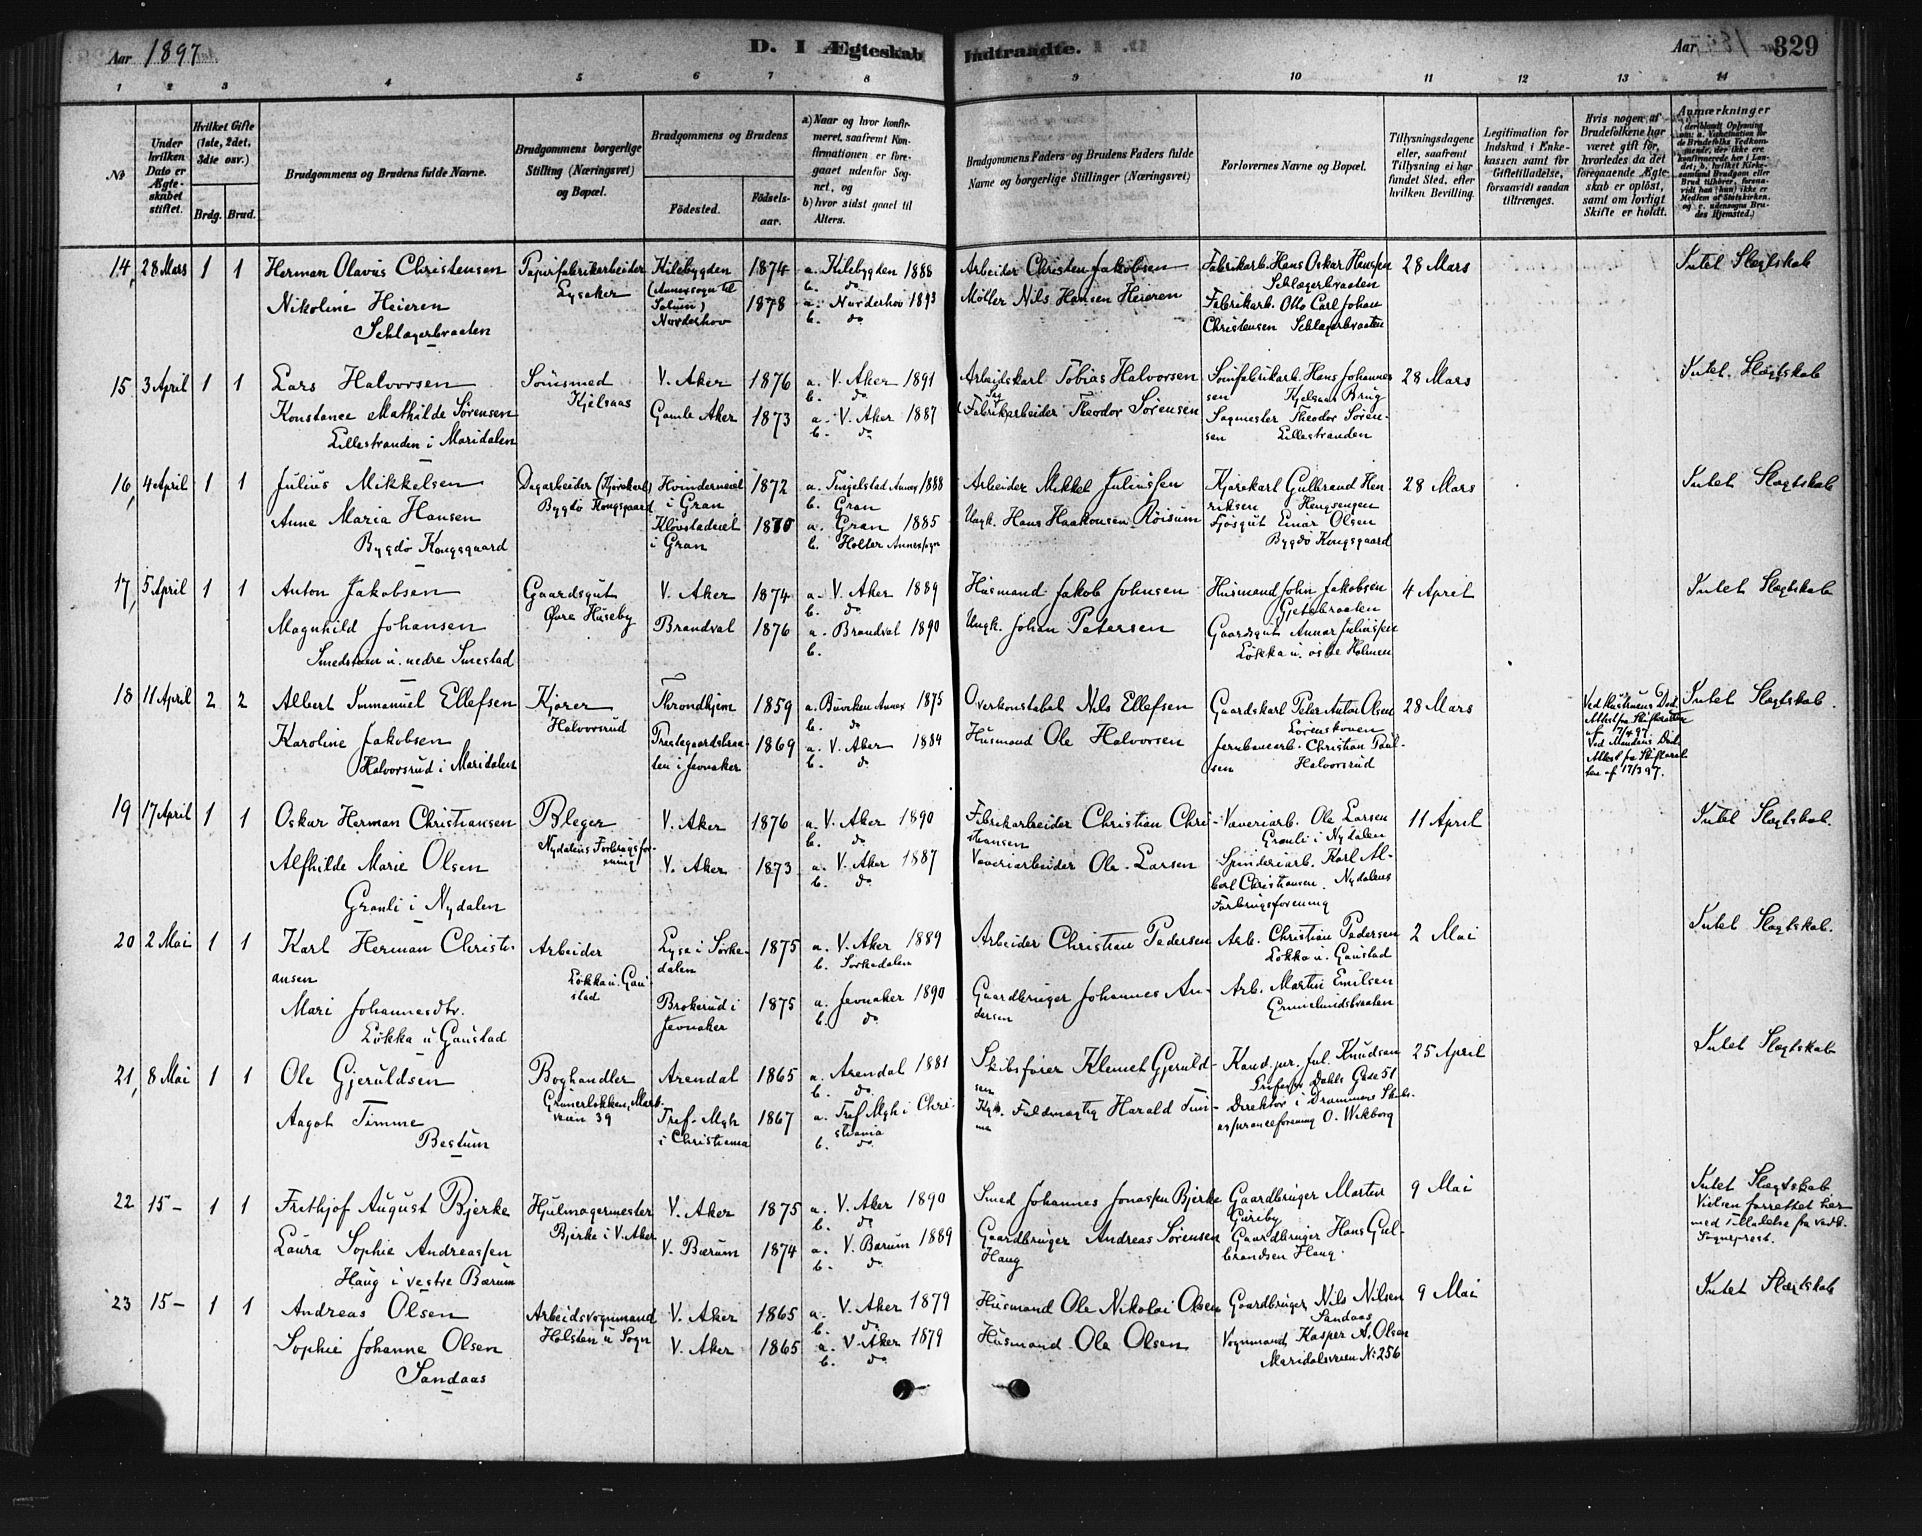 Aar 1897 D. I Ægteskab Indtraadte. Aar 329
1 2 3 4 5 6 7 8 9 10 11 12 13 14
No
Under hvilken Dato er Ægteskabet stiftet.
Hvilket Gifte (1ste, 2det, 3die osv.)
Brdg. Brud.
Brudgommens og Brudens fulde Navne.
Brudgommens borgerlige Stilling (Næringsvei) og Bopæl.
Brudgommens og Brudens
Födested. Födsels-aar.
a) Naar og hvor konfirmeret, saafremt Konfirmationen er foregaaet udenfor Sognet, og
b) hvor sidst gaaet til Alters.
Brudgommens Faders og Brudens Faders fulde Navne og borgerlige Stillinger (Næringsvei)
Forlovernes Navne og Bopæl.
Tillysningsdagene eller, saafremt Tillysning ei har fundet Sted, efter hvilken Bevilling.
Legitimation for Indskud i Enkekassen samt for Giftetilladelse, forsaavidt saadan tiltrænges.
Hvis nogen af Brudefolkene har været gift før, hvorledes da det foregaaende Ægteskab er oplöst, samt om lovligt Skifte er holdt.
Anmærkninger
14, 28 Mars 1 1 Herman Olavus Christensen Papirfabrikarbeider Kilebygden 1874 a. Kilebygden 1888 Arbeider Christen Jakobsen Fabrikarb. Hans Oskar Hanssen 28 Mars Intet Slægtskab
Lysaker (Annexsogn til b. do Schlagerbraaten
Nikoline Heieren Solum) 1878 a. Norderhov 1893 Møller Nils Hansen Heieren Fabrikarb. Otto Carl Johan
Schlagerbraaten Norderhov b. do Christensen Schlagerbraaten
15 3 April 1 1 Lars Halvorsen Sömsmed V. Aker 1876 a. V. Aker 1891 Arbeidskarl Tobias Halvorsen Somfabrikarb. Hans Johannes 28 Mars Intet Slægtskab
Kjelsaas b. do sen Kjelsaas Brug
Konstance Mathilde Sørensen Gamle Aker 1873 a. V. Aker 1887 Fabrikarbeider Theodor Sørensen Sagmester Theodor Sören-
Lillestranden i Maridalen b. do sen Lillestranden
16, 4 April 1 1 Julius Mikkelsen Dagarbeider (Kjørekarl) 1872 a. Tingelstad Annex 1888 Arbeider Mikkel Juliussen Kjørekarl Gulbrand Hen- 28 Mars Intet Slægtskab
Bygdø Kongsgaard i Gran b. Gran riksen Hengsengen
Anne Maria Hansen 1870 a. Gran 1885 Ungk. Hans Haakonsen Röisum Fjøsgut Einar Olsen
Bygdø Kongsgaard i Gran b. Holter Annexsogn Bygdö Kongsgaard
17, 5 April 1 1 Anton Jakobsen Gaardsgut V. Aker 1874 a. V. Aker 1889 Husmand Jakob Johnsen Husmand John Jakobsen 4 April Intet Slægtskab
Øvre Huseby b. do Gjetebraaten
Magnhild Johansen Brandval 1876 a. Brandval 1890 Ungk. Johan Petersen Gaardsgut Annar Juliussen
Smedstuen u. nedre Smestad b. Løkka u. østre Holmen
18 11 April 2 2 Albert Immanuel Ellefsen Kjører Throndhjem 1859 a. Annex 1875 Overkonstabel Nils Ellefsen Gaardskarl Peter Anton Olsen 28 Mars Intet Slægtskab.
Halvorsrud b. do Lorenskoven
Karoline Jakobsen Prestegaardsbraa- 1869 a. V. Aker 1884 Husmand Ole Halvorsen Jernbanearb. Christian Paul-
Halvorsrud i Maridalen ten i Jevnaker b. do sen Halvorsrud
Ved Hustruens Död.
Attest fra Skifteretten
af 17/4 97.
Ved Mandens Död
Attest fra Skifteret-
ten af 17/3 97.
19 17 April 1 1 Oskar Herman Christiansen Bleger V. Aker 1876 a. V. Aker 1890 Fabrikarbeider Christian Chri- Væveriarb. Ole Larsen 11 April Intet Slægtskab.
Nydalens Forbrugsfor- b. do stiansen Granli i Nydalen
Alfhilde Marie Olsen ening V. Aker 1873 a. V. Aker 1887 Væveriarbeider Ole Larsen Spinderiarb. Karl Al-
b. do bert Christiansen. Nydalens
Granli i Nydalen Forbrugsforening
20 2 Mai 1 1 Karl Herman Christi- Arbeider Lysa i Sørke- 1875 a. V. Aker 1889 Arbeider Christian Pedersen Arb. Christian Pedersen 2 Mai Intet Slægtskab.
ansen Løkka u. Gau- dalen b. Sørkedalen Løkka u. Gaustad
Mari Johannesdtr. stad Brokerud i 1875 a. Jevnaker 1890 Gaardbruger Johannes An- Arb. Martin Emilsen
Løkka u Gaustad Jevnaker b. do dersen
21, 8 Mai 1 1 Ole Gjeruldsen Boghandler Arendal 1865 a. Arendal 1881 Skibsfører Klemet Gjeruld- Kand. jur. Jul. Knudsen 25 April Intet Slægtskab
Grünerløkken, Mark- b. do sen Professor Dahls Gade 51
Aagot Timme veien 39 Tref. Mgh 1867 a. Tref Mgh i Chri- Fuldmægtig Harald Tim- Direktör i Drammens Skibs-
Bestum i Christiania stiania me assuranceforening O. Wiborg
b. do
22 15 – 1 1 Frithjof August Bjerke Hjulmagermester V. Aker 1875 a. V. Aker 1890 Smed Johannes Jonassen Bjerke Gaardbruger Morten 9 Mai Intet Slægtskab
Bjerke i V. Aker b. do Guriby Vielsen forrettet her
Laura Sophie Andreassen V. Bærum 1874 a. V. Bærum 1889 Gaardbruger Andreas Sørensen Gaardbruger Hans Gul- med Tilladelse fra vedk.
Haug i vestre Bærum b. do Haug brandsen Haug. Sognepræst.
23 15 – 1 1 Andreas Olsen Arbeidsvognmand V. Aker 1865 a. V. Aker 1879 Husmand Ole Nikolai Olsen Gaardbruger Nils Nilsen 9 Mai Intet Slægtskab
Holsten u Sogn b. do Sandaas
Sophie Johanne Olsen V. Aker 1865 a. V. Aker 1879 Husmand Ole Olsen Vognmand Kasper A. Olsen
Sandaas b. do Maridalsveien N: 256